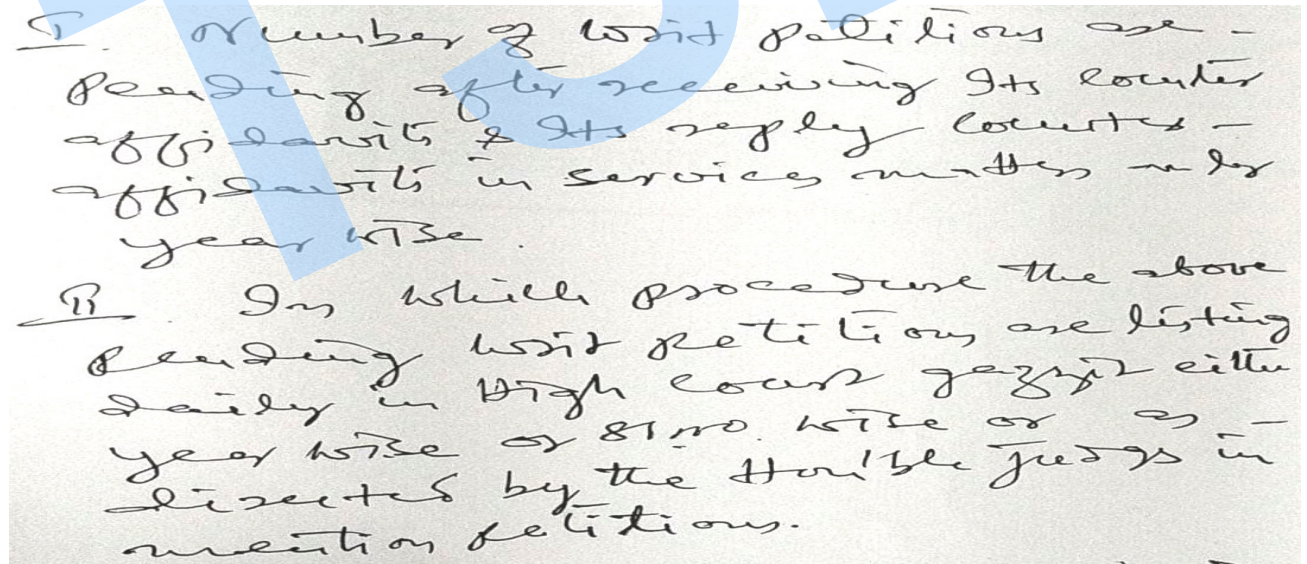 I. Number of writ petitions are -
Pending after receiving Its counter
affidavits & Its reply counter -
affidavits in services matters only
year wise.
II In which procedure the above
pending writ petitions are listing
daily in High court gazzit either
year wise or Sl no. wise or as -
directed by the Hon'ble judges in
mention petitions.